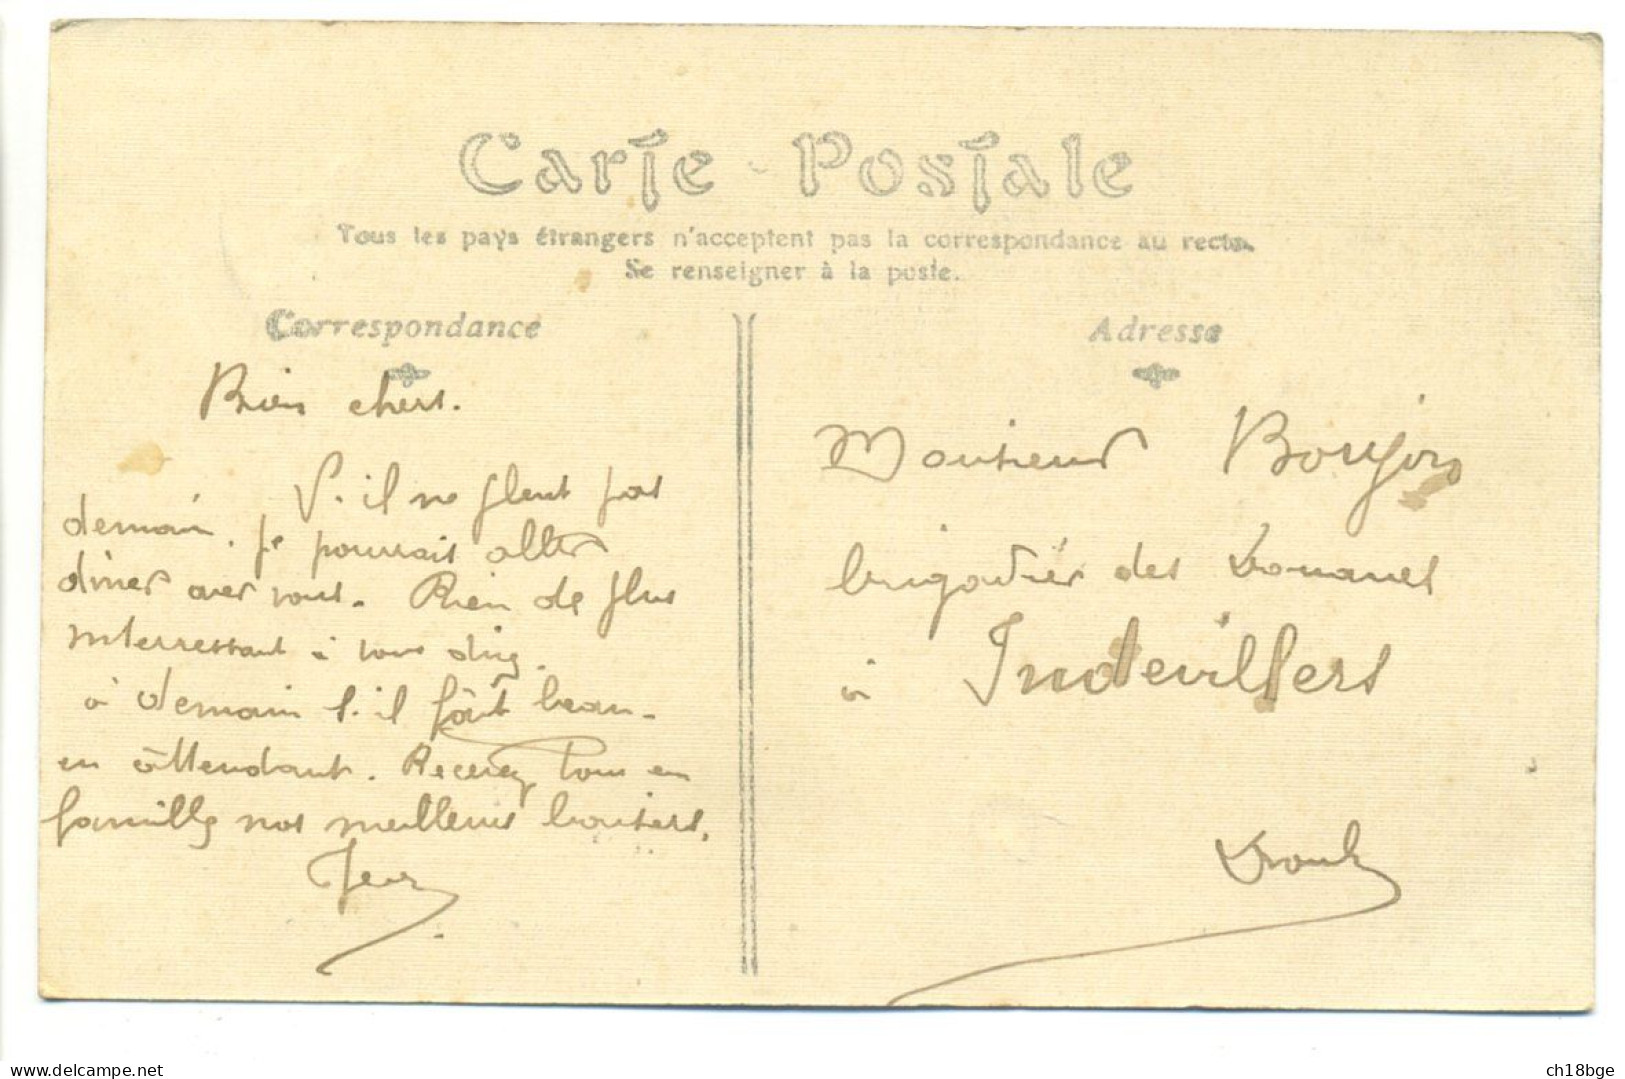 Carte Postale
Tous les pays étrangers n'acceptent pas la correspondance au recto.
Se renseigner à la poste.
Correspondance
Adresse
Bien chers.
S. il ne pleut pas
demain. je pourrais aller
diner avec vous. Rien de plus
interressant à vous dire.
à demain s. il fait beau.
en attendant. Recevez tous en
famille nos meilleurs baisers.
Monsieur
brigadier des Douanes
à Indevillers
Doubs
ch18bge